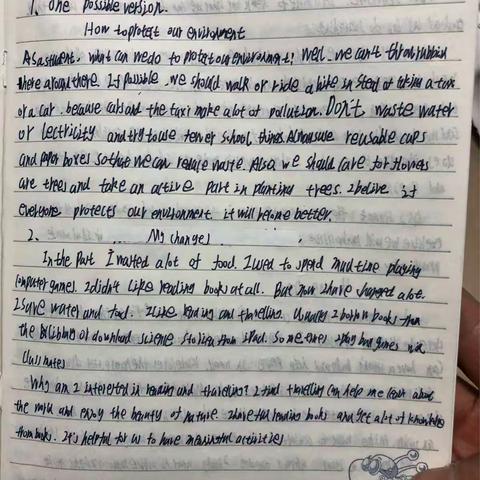 1. One possible version.
How to protect our environment
As a student, what can we do to protect our environment? Well. we can't throw rubbish
here around there. If possible, we should walk or ride a bike in stead of taking a taxi
or a car. because cars and the taxi make a lot of pollution. Don't waste water
or lectricity and try to use fewer school things. Always use reusable cups
and paper boxes so that we can reduce waste. Also, we should care for flowers
are trees and take an active part in planting trees. I belive if
everyone protects our environment. it will become better.
2. My changes
In the Part I wasted a lot of food. I used to spend much time playing
computer games. I didn't like reading books at all. But now I have changed a lot.
I save water and food. I like reading and travelling. Usually I borrow books from
the or download science stories from iPad. Some times I play games
Classmates
Why am I interested in reading and traveling? I find travelling can help me learn about
the world and enjoy the beauty of nature. I have reading books and get a lot of knowledge
from books. It's helpful for us to have meaningful activities